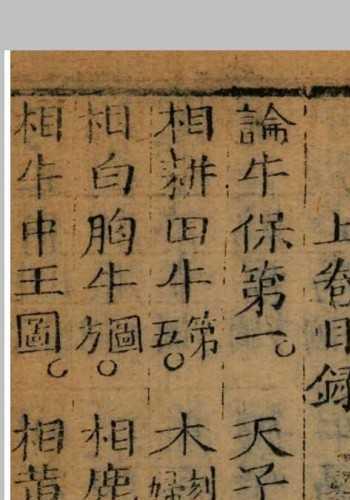 上卷目錄
論牛保第一 天子
相耕田牛第五 木刻婦
相白胸牛圖方 相鹿
相牛中王圖 相黄